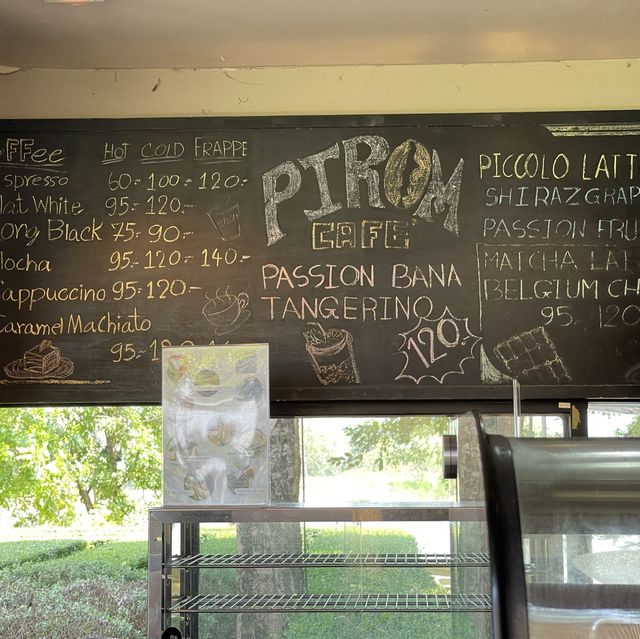 FFee HOT COLD FRAPPE
spresso 60.- 100.- 120.-
lat White 95.- 120.-
ong Black 75.- 90.-
ocha 95.- 120.- 140.-
appuccino 95.- 120.-
Caramel Machiato
95.-
PIROM
CAFE
PASSION BANA
TANGERINO
120.-
PICCOLO LATT
SHIRAZ GRAP
PASSION FRU
MATCHA LAT
BELGIUM CH
95. /120